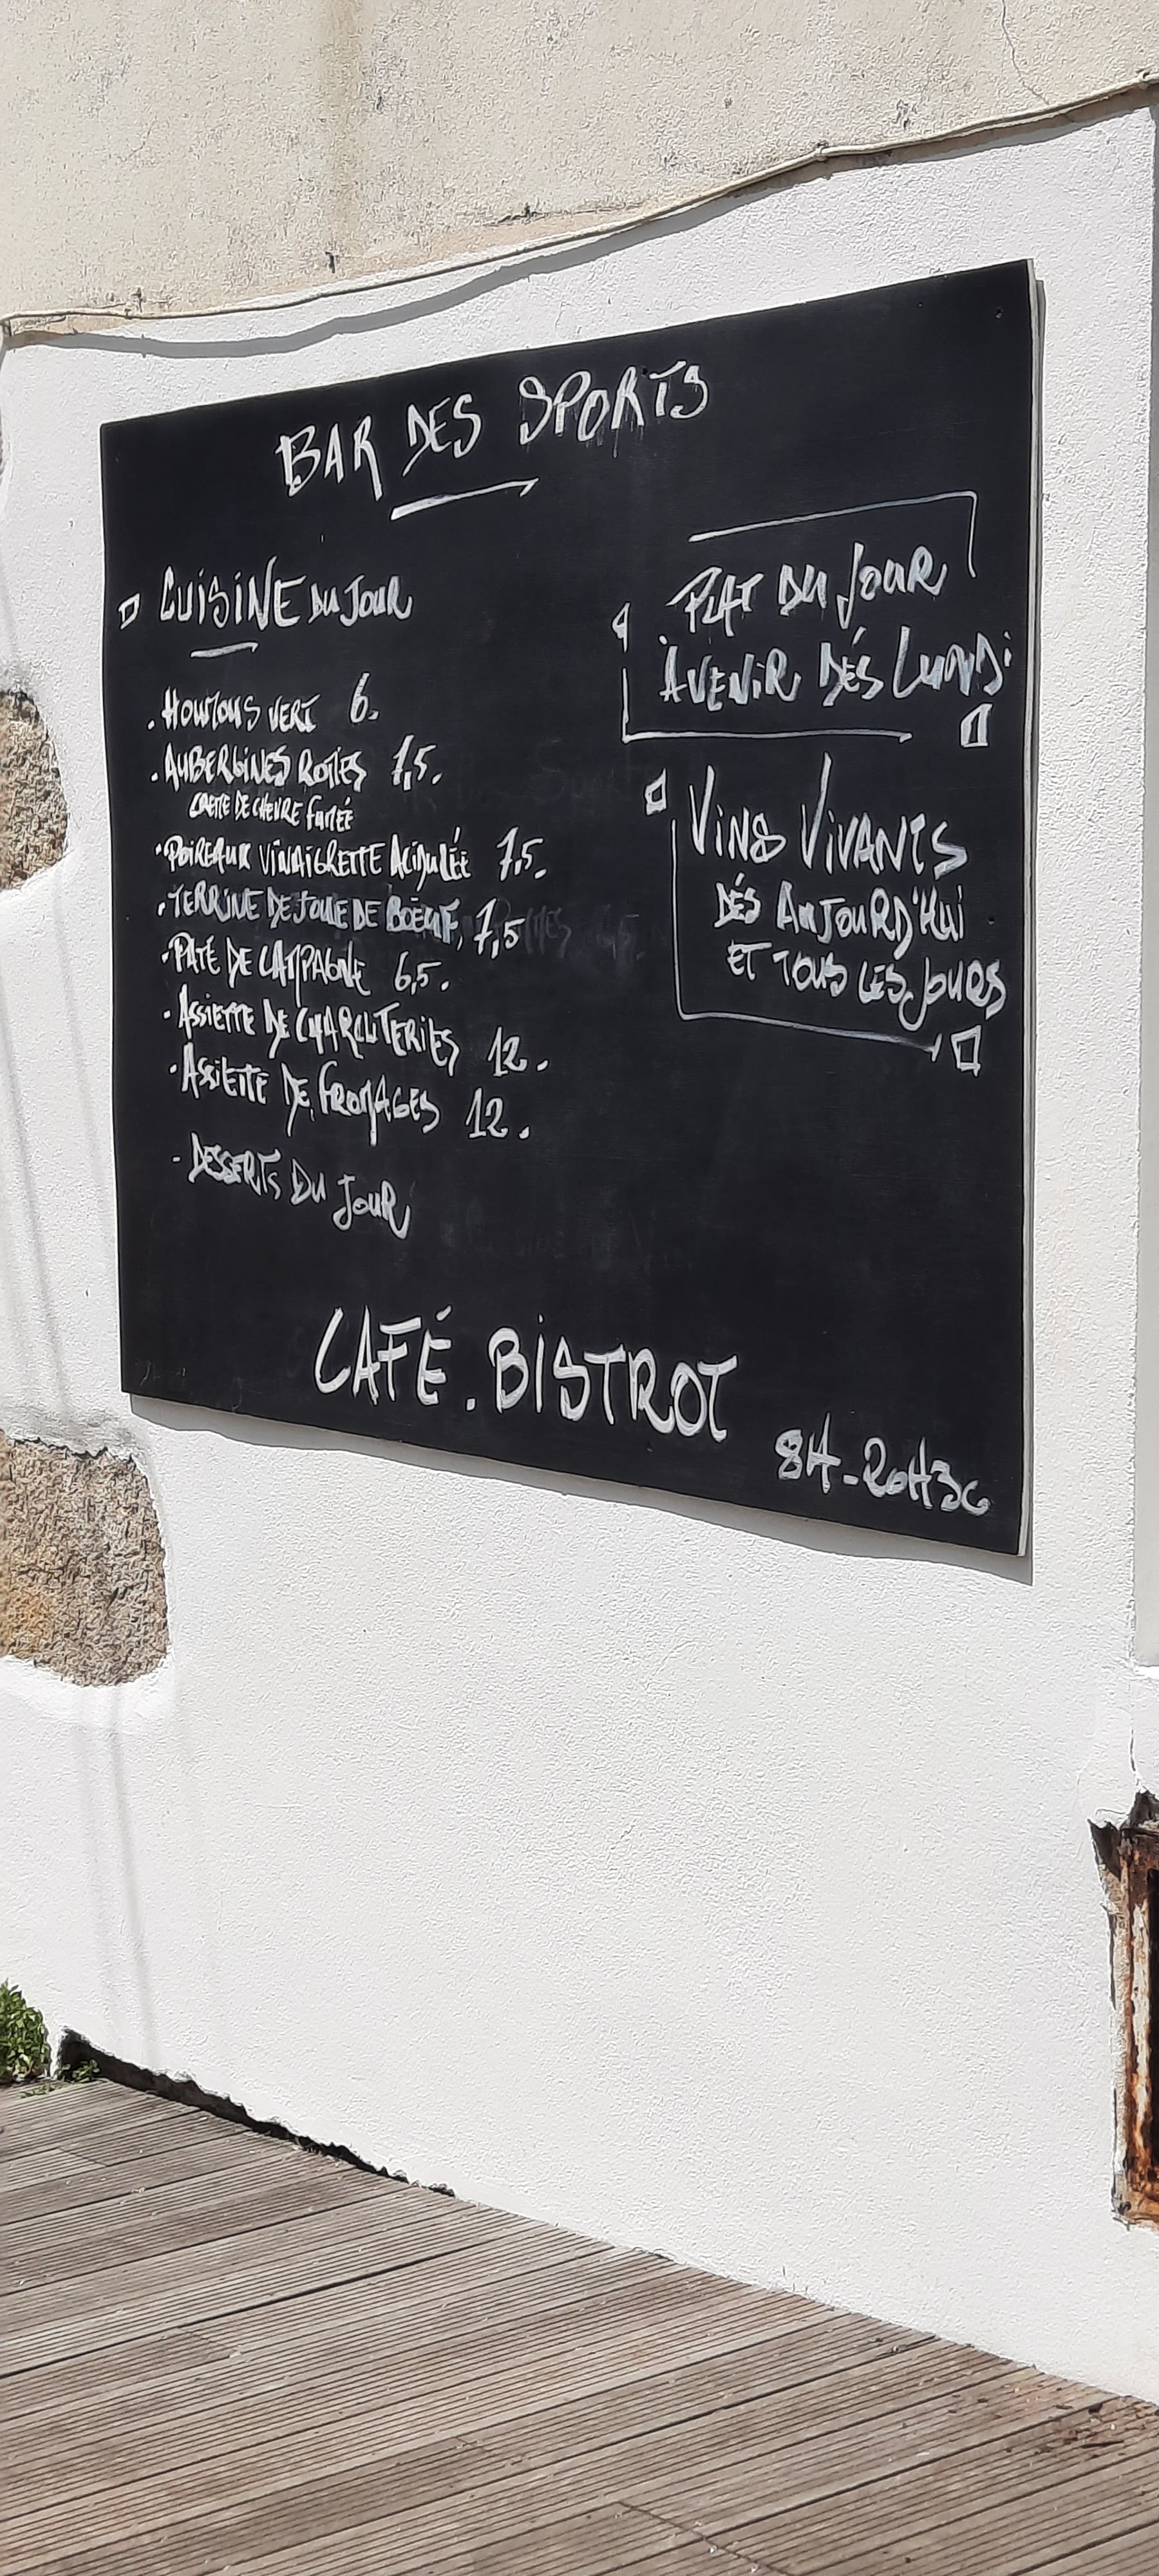 BAR DES SPORTS
CUISINE DU JOUR
. HOUMOUS VERT 6.
. AUBERGINES ROTIES 7,5.
DE CHEVRE FUMÉE
. POIREAUX VINAIGRETTE ACIDULÉE 7,5.
. TERRINE DE JOUE DE BOEUF, 7,5
. PATE DE CAMPAGNE 6,5.
. ASSIETTE DE CHARCUTERIES 12.
. ASSIETTE DE FROMAGES 12.
- DESSERTS DU JOUR
PLAT DU JOUR
À VENIR DÉS LUNDI
VINS VIVANTS
DÉS AUJOURD'HUI
ET TOUS LES JOURS
CAFÉ . BISTROT
8H - 20H30